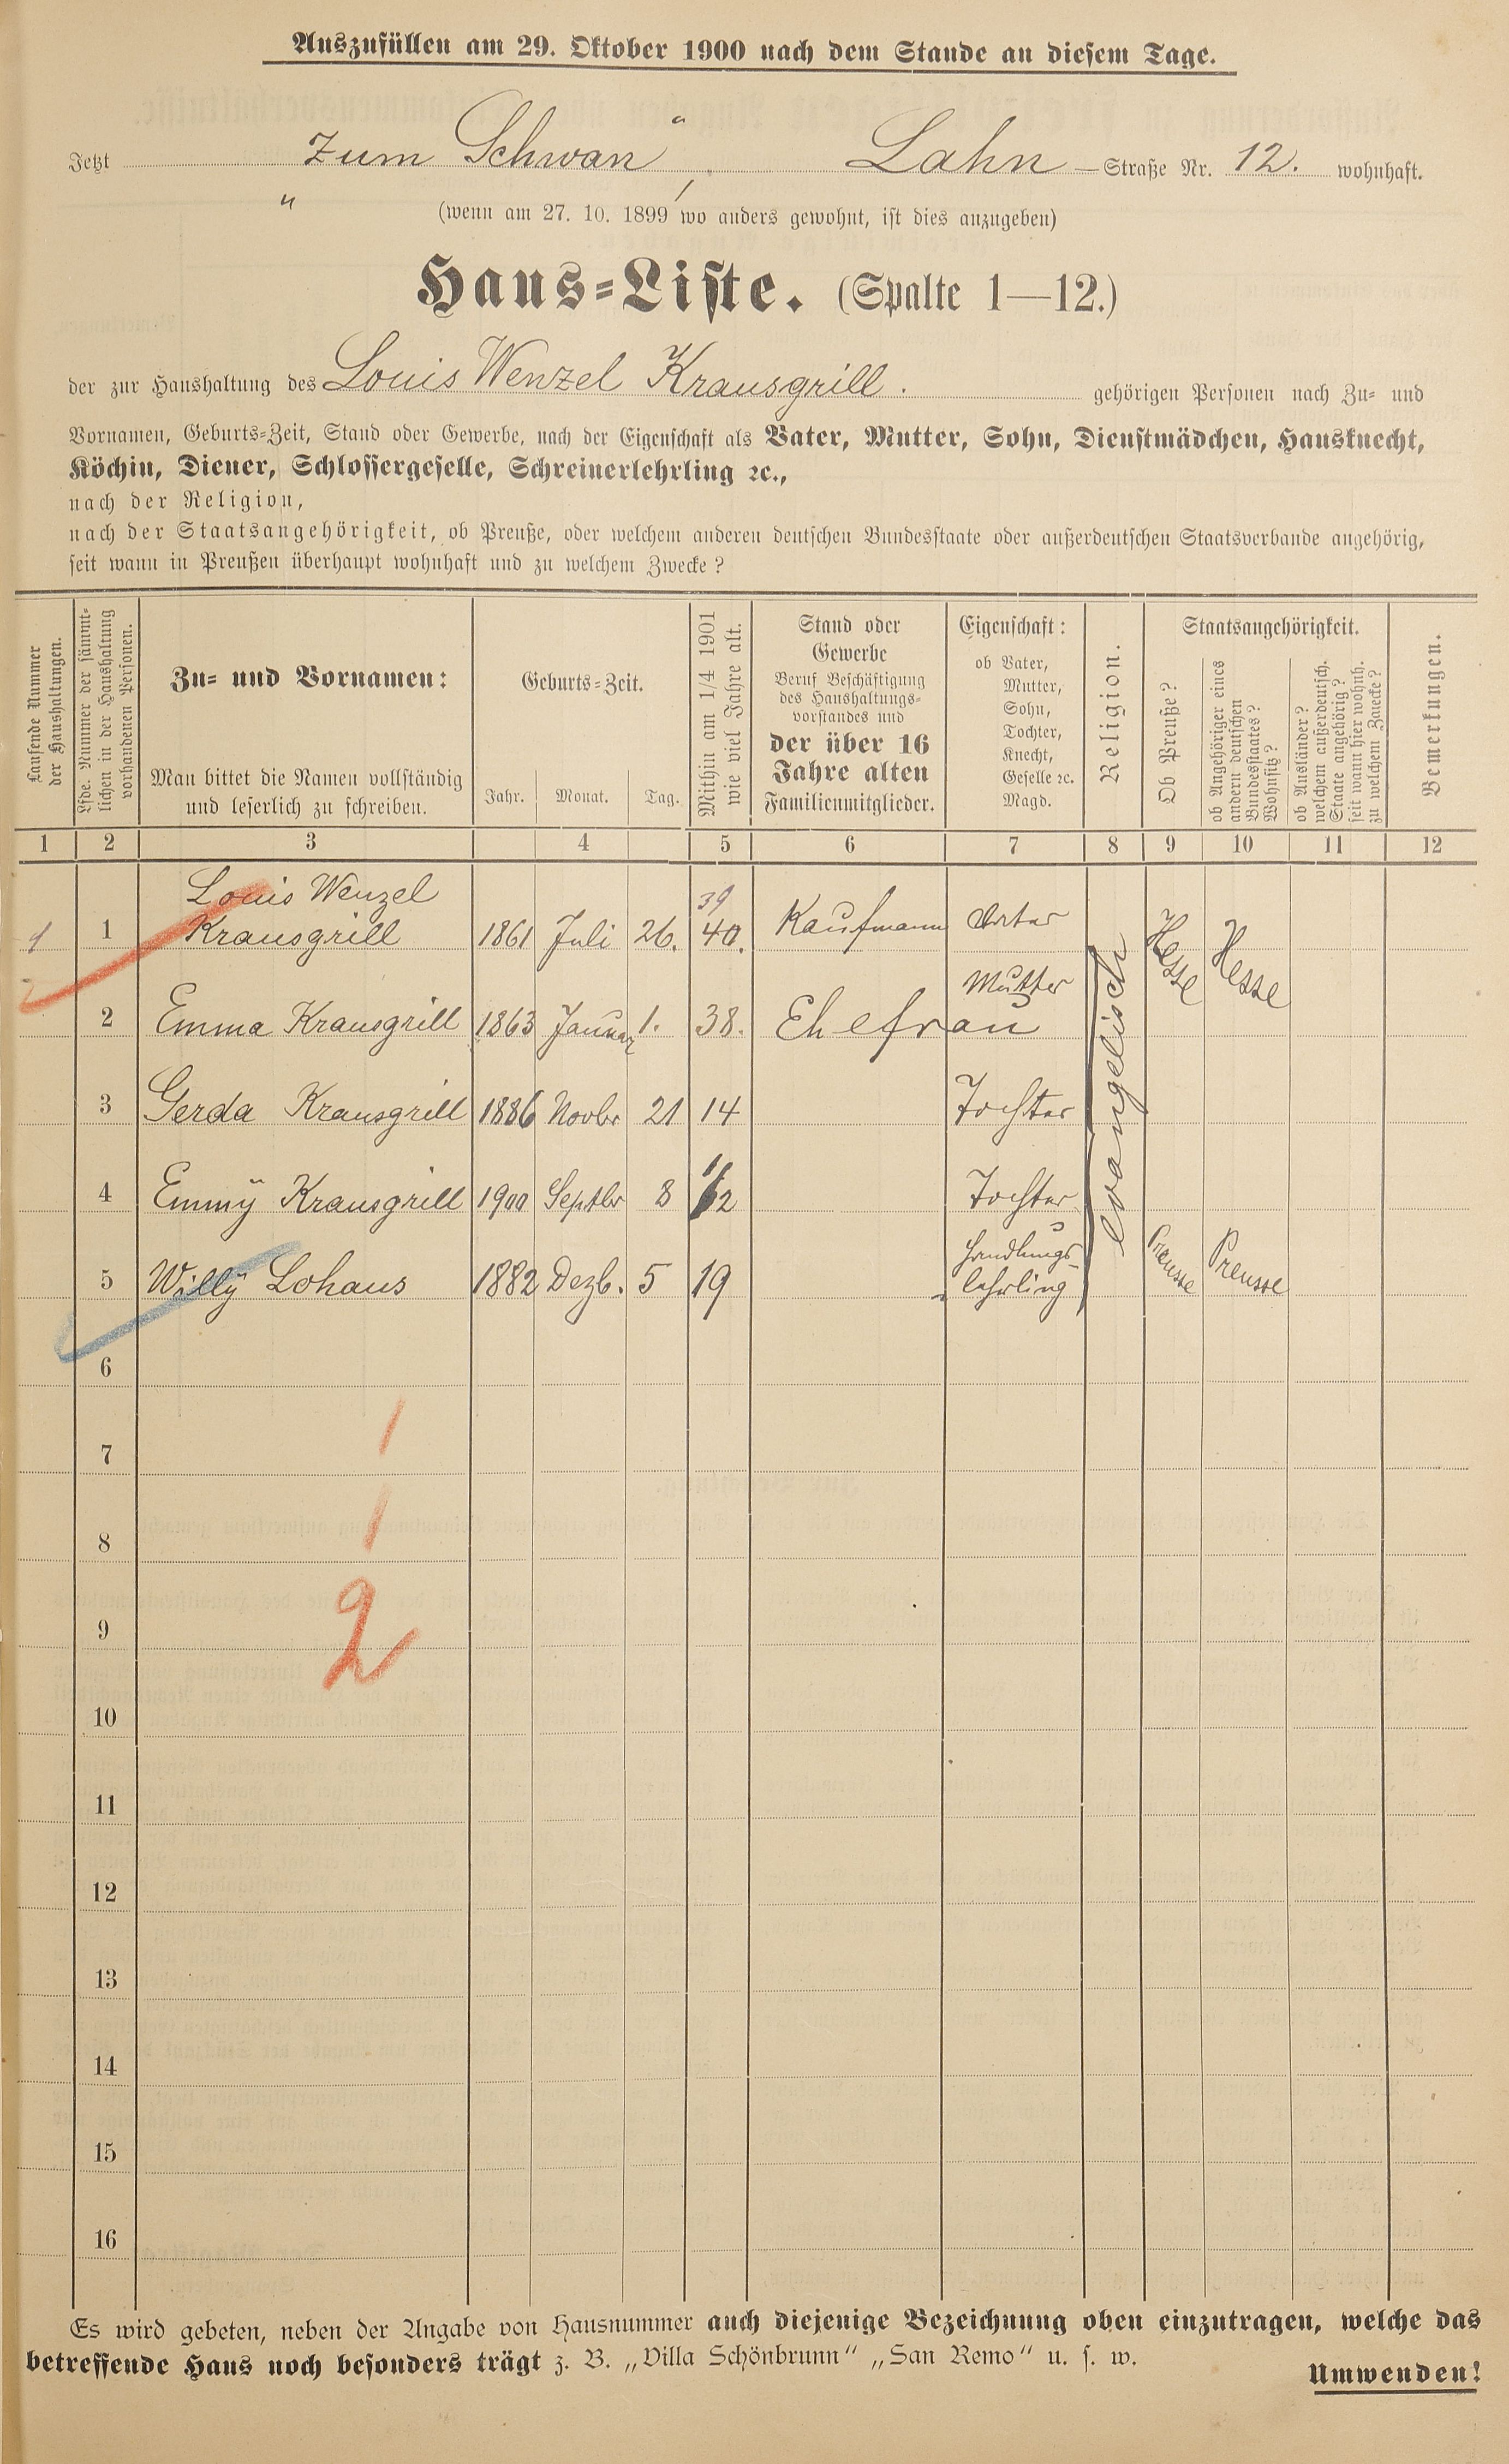 Auszufüllen am 29. Oktober 1900 nach dem Stande an diesem Tage.
Jetzt „Zum Schwan“, Lahn-Straße Nr. 12. wohnhaft.
(wenn am 27. 10. 1899 wo anders gewohnt, ist dies anzugeben)
Haus-Liste. (Spalte 1—12.)
der zur Haushaltung des Louis Wenzel Krausgrill. gehörigen Personen nach Zu- und
Vornamen, Geburts-Zeit, Stand oder Gewerbe, nach der Eigenschaft als Vater, Mutter, Sohn, Dienstmädchen, Hausknecht,
Köchin, Diener, Schlossergeselle, Schreinerlehrling ꝛc.,
nach der Religion,
nach der Staatsangehörigkeit, ob Preuße, oder welchem anderen deutschen Bundesstaate oder außerdeutschen Staatsverbande angehörig,
seit wann in Preußen überhaupt wohnhaft und zu welchem Zwecke?
Laufende Nummer
der Haushaltungen.
Lfde. Nummer der sämmt-
lichen in der Haushaltung
vorhandenen Personen.
Zu- und Vornamen:
Man bittet die Namen vollständig
und leserlich zu schreiben.
Geburts-Zeit.
Jahr. Monat. Tag.
Mithin am 1/4 1901
wie viel Jahre alt.
Stand oder
Gewerbe
Beruf Beschäftigung
des Haushaltungs-
vorstandes und
der über 16
Jahre alten
Familienmitglieder.
Eigenschaft:
ob Vater,
Mutter,
Sohn,
Tochter,
Knecht,
Geselle ꝛc.
Magd.
Religion.
Staatsangehörigkeit.
Ob Preuße?
ob Angehöriger eines
andern deutschen
Bundesstaates?
Wohnsitz?
ob Ausländer?
welchem außerdeutsch.
Staate angehörig?
seit wann hier wohnh.
zu welchem Zwecke?
Bemerkungen.
1 2 3 4 5 6 7 8 9 10 11 12
Louis Wenzel 39
1 1 Krausgrill 1861 Juli 26. 40. Kaufmann Vater Hesse Hesse
2 Emma Krausgrill 1863 Januar 1. 38. Ehefrau Mutter
evangelisch
3 Gerda Krausgrill 1886 Novbr 21 14 Tochter
4 Emmy Krausgrill 1900 Septbr 8 1/2 Tochter
5 Willy Lohaus 1882 Dezb. 5 19 Handlungs-
lehrling Preusse Preusse
6
7 1
8 1
9 2
10
11
12
13
14
15
16
Es wird gebeten, neben der Angabe von Hausnummer auch diejenige Bezeichnung oben einzutragen, welche das
betreffende Haus noch besonders trägt z. B. „Villa Schönbrunn“ „San Remo“ u. s. w.
Umwenden!